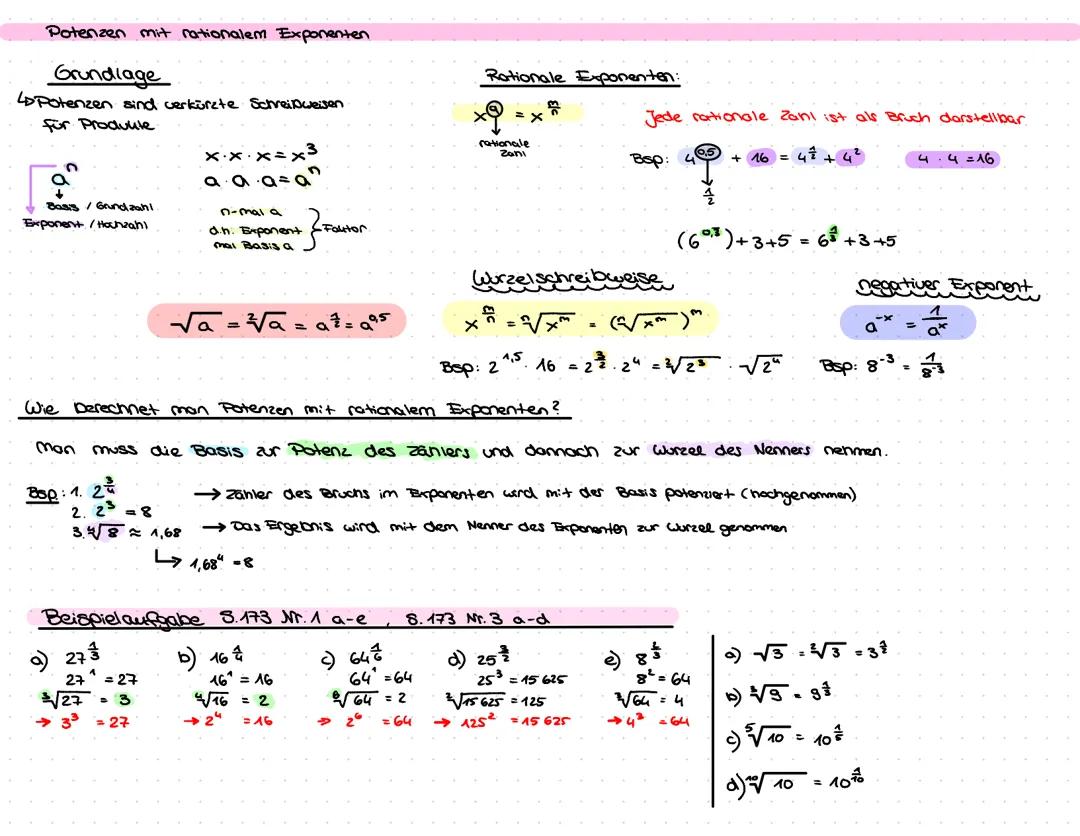 Potenzen mit rationalem Exponenten
Grundlage
↳ Potenzen sind verkürzte Schreibweisen
für Produkte
aⁿ
Basis / Grundzahl
Exponent / Hochzahl
x · x · x = x³
a · a · a = aⁿ
n-mal a
d.h. Exponent
mal Basis a
} Faktor
Rationale Exponenten:
x^q = x^(m/n)
rationale
Zahl
Jede rationale Zahl ist als Bruch darstellbar
Bsp: 4^0,5 + 16 = 4^(1/2) + 4²
1/2
4 · 4 = 16
(6^0,3) + 3 + 5 = 6^(1/3) + 3 + 5
√a = ²√a = a^(1/2) = a^0,5
Wurzelschreibweise
x^(m/n) = ⁿ√(x^m) = (ⁿ√(x^m))^m
Bsp: 2^1,5 · 16 = 2^(3/2) · 2⁴ = ²√(2³) · √(2⁴)
negativer Exponent
a^(-x) = 1/a^x
Bsp: 8^(-3) = 1/8^(-3)
Wie berechnet man Potenzen mit rationalem Exponenten?
Man muss die Basis zur Potenz des Zählers und dannach zur Wurzel des Nenners nehmen.
Bsp: 1. 2^(3/4) → Zähler des Bruchs im Exponenten wird mit der Basis potenziert (hochgenommen)
2. 2³ = 8
3. ⁴√8 ≈ 1,68 → Das Ergebnis wird mit dem Nenner des Exponenten zur Wurzel genommen
↳ 1,68⁴ = 8
Beispielaufgabe S.173 Nr. 1 a-e , S.173 Nr. 3 a-d
a) 27^(1/3)
27¹ = 27
³√27 = 3
→ 3³ = 27
b) 16^(1/4)
16¹ = 16
⁴√16 = 2
→ 2⁴ = 16
c) 64^(1/6)
64¹ = 64
⁶√64 = 2
→ 2⁶ = 64
d) 25^(3/2)
25³ = 15 625
²√15 625 = 125
→ 125² = 15 625
e) 8^(2/3)
8² = 64
³√64 = 4
→ 4³ = 64
a) √3 = ²√3 = 3^(1/2)
b) ³√9 = 9^(1/3)
c) ⁵√10 = 10^(1/5)
d) ¹⁰√10 = 10^(1/10)